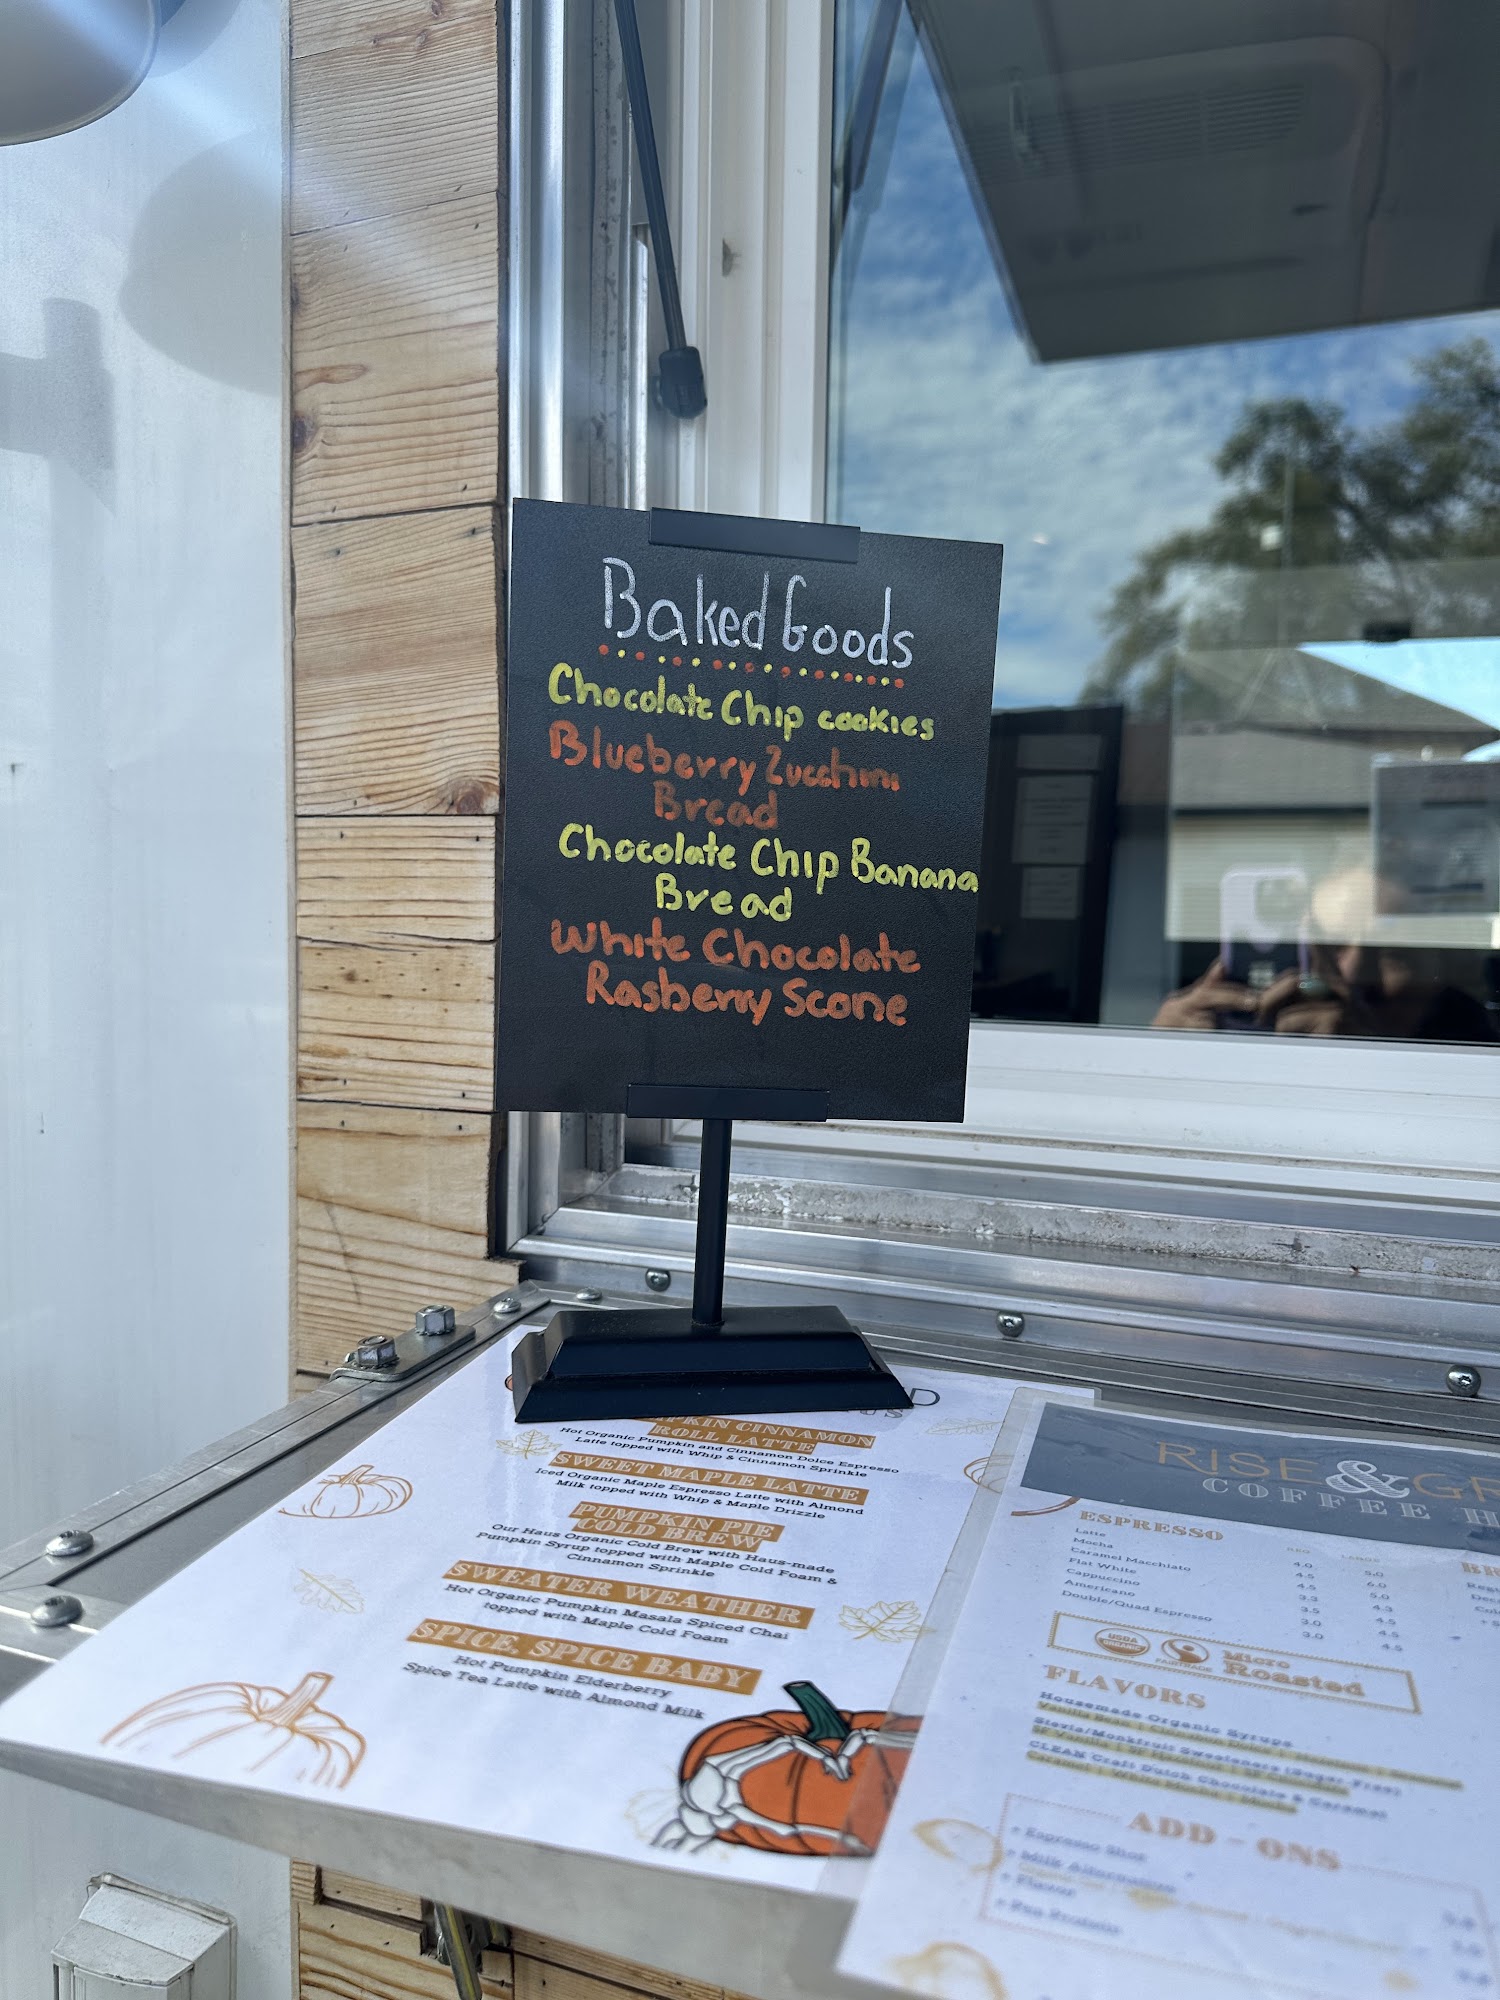 Baked Goods
Chocolate Chip cookies
Blueberry Zucchini
Bread
Chocolate Chip Banana
Bread
White Chocolate
Rasberry Scone
CINNAMON
ROLL LATTE
Hot Organic Pumpkin and Cinnamon Dolce Espresso
Latte topped with Whip & Cinnamon Sprinkle
SWEET MAPLE LATTE
Iced Organic Maple Espresso Latte with Almond
Milk topped with Whip & Maple Drizzle
PUMPKIN PIE
COLD BREW
Our Haus Organic Cold Brew with Haus-made
Pumpkin Syrup topped with Maple Cold Foam &
Cinnamon Sprinkle
SWEATER WEATHER
Hot Organic Pumpkin Masala Spiced Chai
topped with Maple Cold Foam
SPICE, SPICE BABY
Hot Pumpkin Elderberry
Spice Tea Latte with Almond Milk
RISE & GR
COFFEE H
ESPRESSO
Latte
Mocha
Caramel Macchiato
Flat White
Cappuccino
Americano
Double/Quad Espresso
USDA
ORGANIC
FAIRTRADE
Micro
Roasted
FLAVORS
Housemade Organic Syrups
Stevia/Monkfruit Sweeteners (Sugar-Free)
CLEAN Craft Dutch Chocolate & Caramel
ADD-ONS
Espresso Shot
Milk Alternative
Flavor